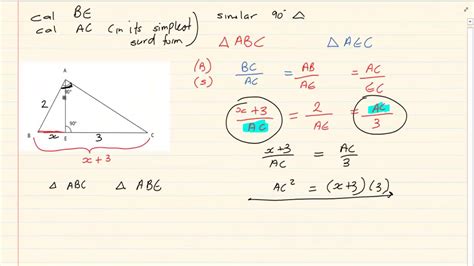 cal BE
cal AC (in its simplest surd form)
similar 90° △
△ ABC
△ AEC
(B) BC/AC = AB/AE = AC/EC
(S)
x+3/AC = 2/AE = AC/3
x+3/AC = AC/3
AC² = (x+3)(3)
A
90°
2
90°
B
x
E
3
C
x+3
△ ABC
△ ABE